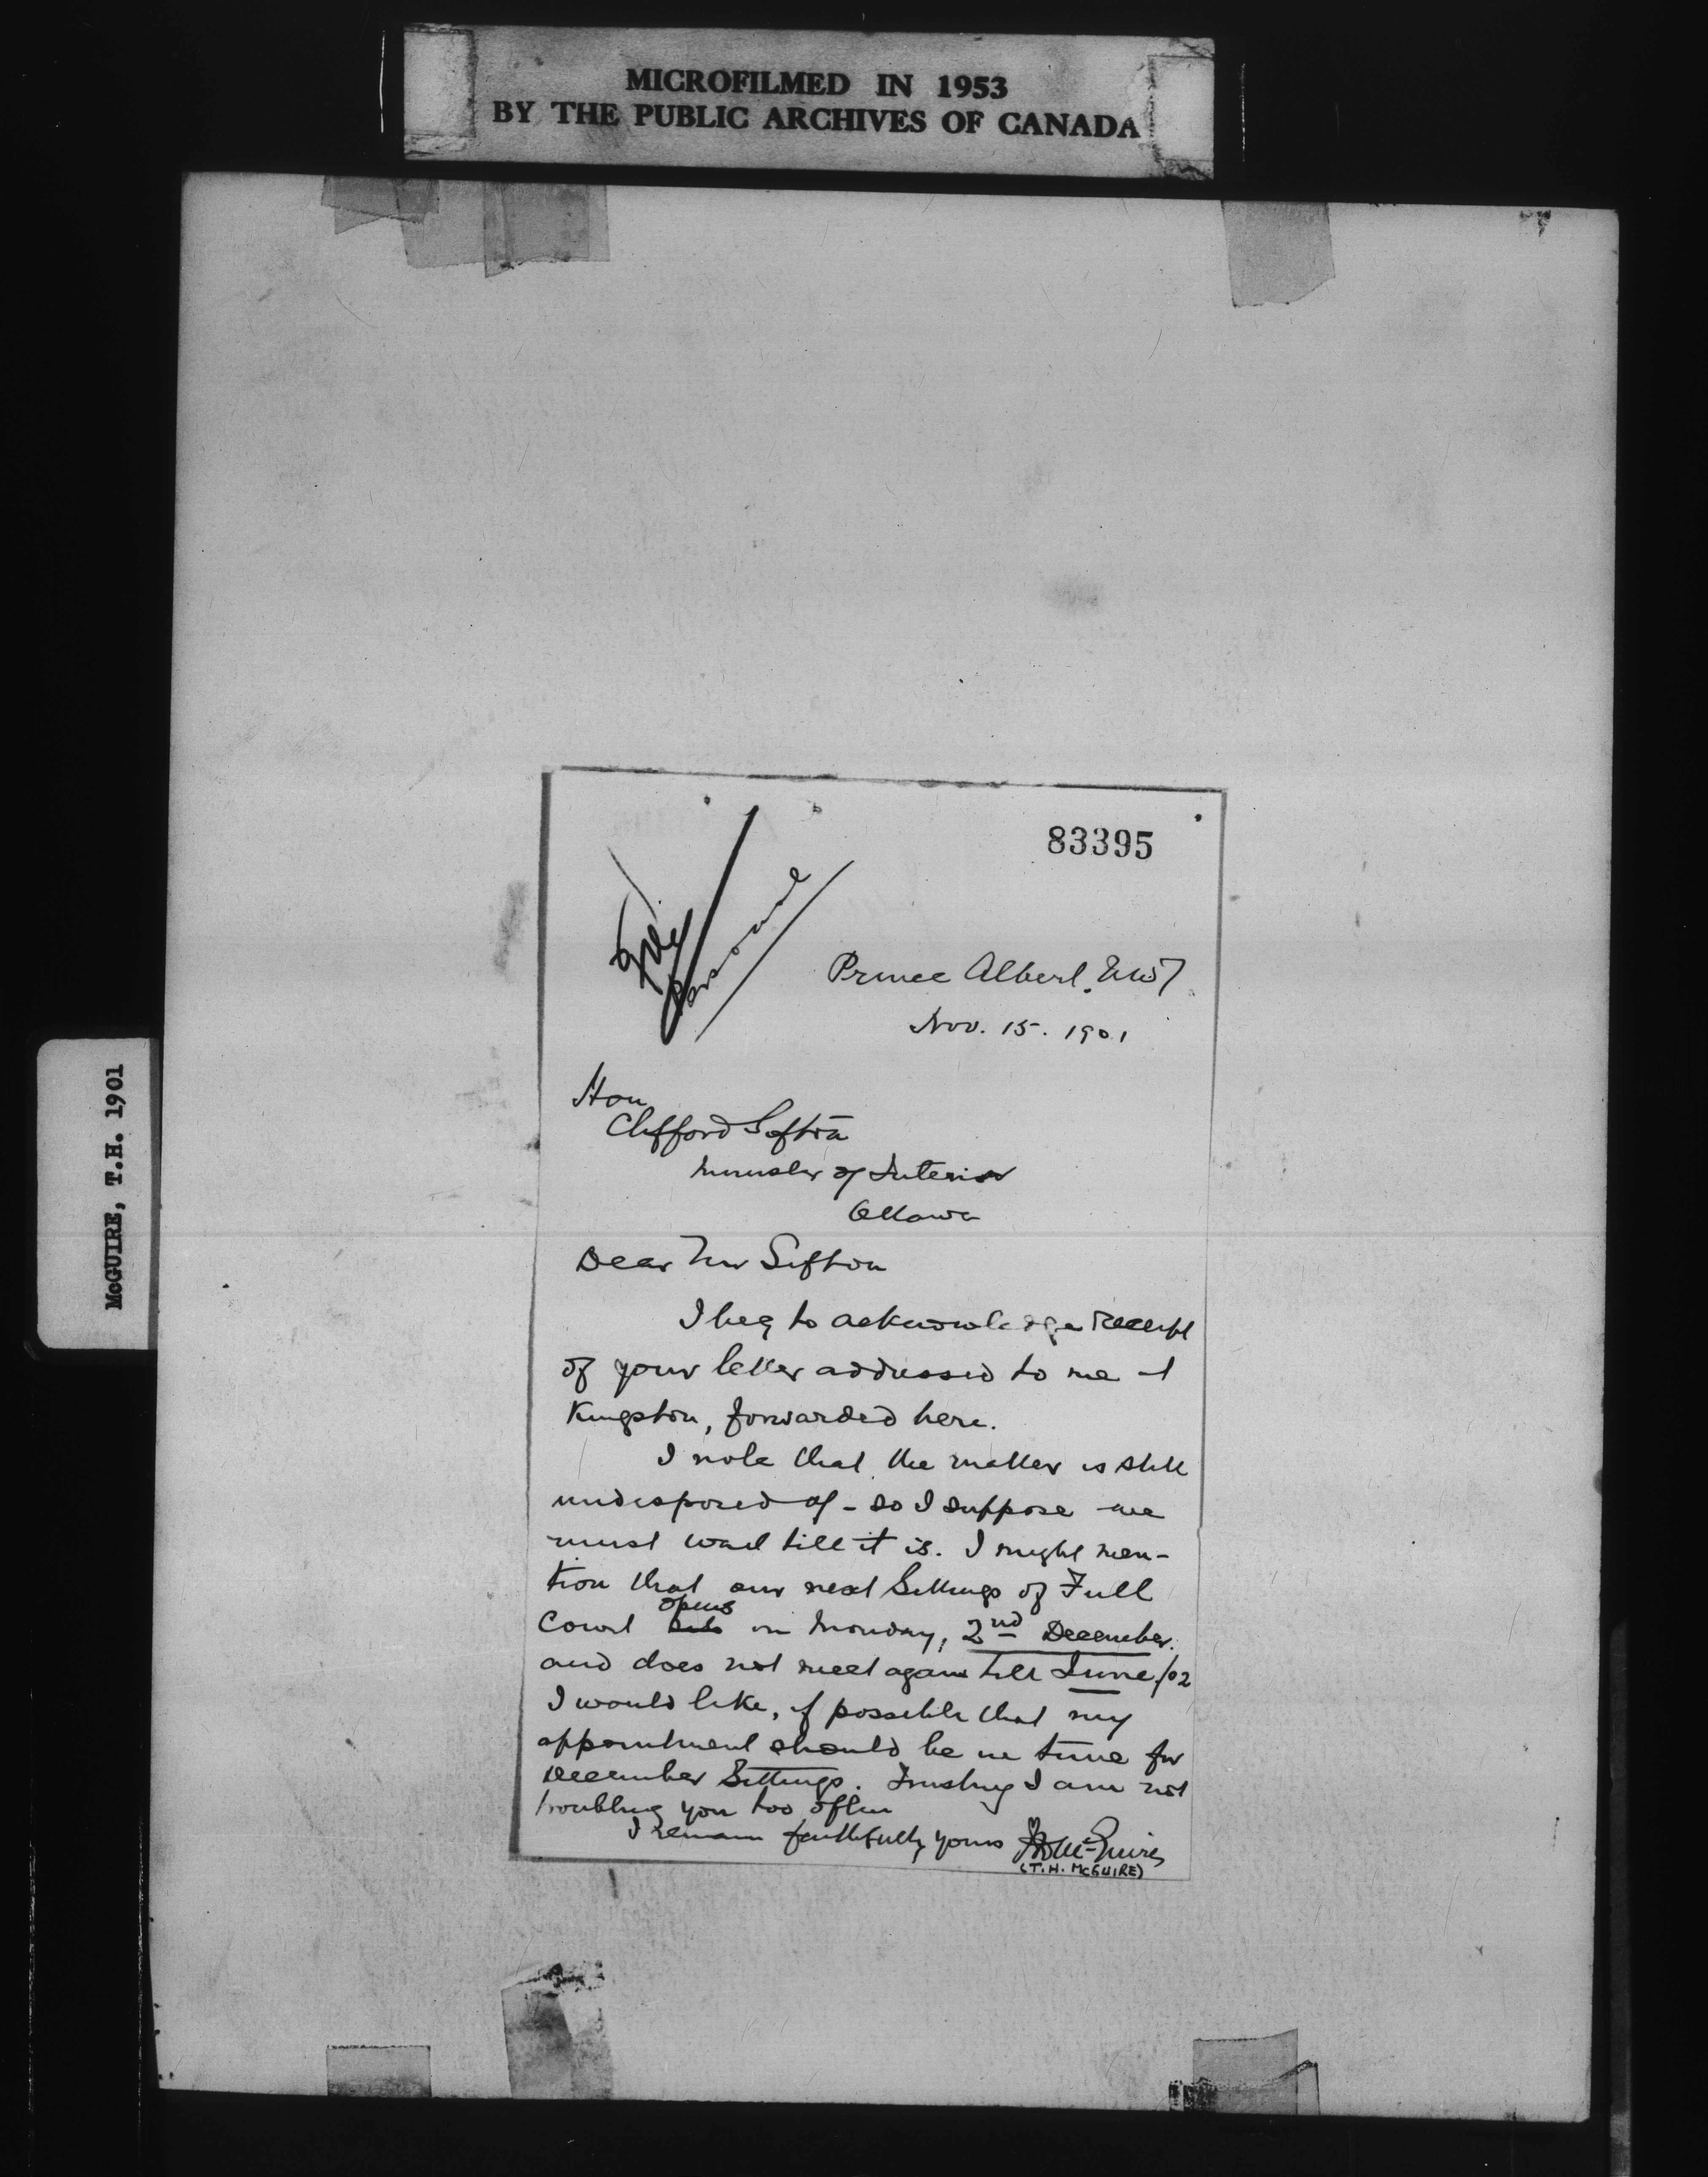 MICROFILMED IN 1953
BY THE PUBLIC ARCHIVES OF CANADA
McGUIRE, T.H. 1901
83395
File
Personal
Prince Albert. NWT
Nov. 15. 1901
Hon
Clifford Sifton
Minister of Interior
Ottawa
Dear Mr Sifton
I beg to acknowledge receipt
of your letter addressed to me at
Kingston, forwarded here.
I note that the matter is still
undisposed of - so I suppose we
must wait till it is. I might men-
tion that our next Sittings of Full
Court opens on Monday, 2nd December.
and does not meet again till June/02
I would like, if possible that my
appointment should be in time for
December Sittings. Trusting I am not
troubling you too often
I remain faithfully yours TH McGuire
(T.H. McGUIRE)